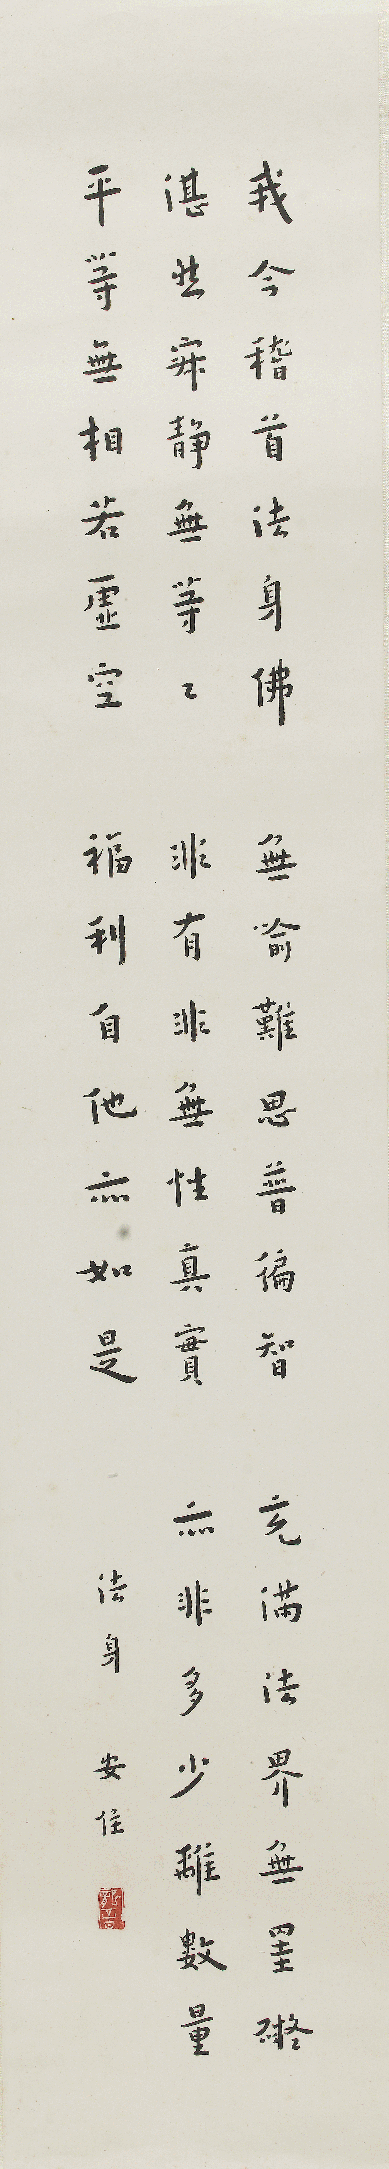 我今稽首法身佛 無喻難思普徧智 充滿法界無罣礙
湛然寂靜無等〻 非有非無性真實 亦非多少離數量
平等無相若虛空 福利自他亦如是 法身 安住